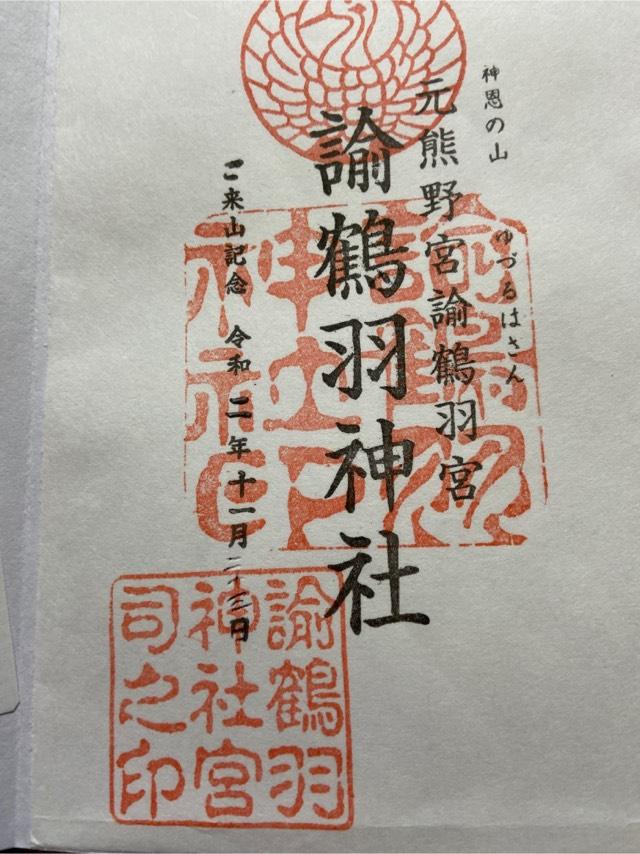 神恩の山
ゆづるはさん
元熊野宮諭鶴羽宮
諭鶴羽神社
ご来山記念 令和二年十一月二十三日
諭鶴羽
神社
神社印
諭鶴羽
神社宮
司之印